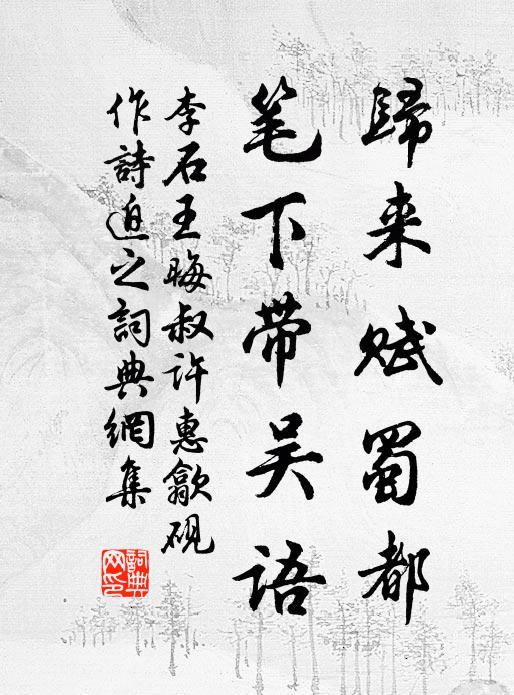 歸来赋蜀都
笔下带吴语
李石王晦叔许惠歙砚
作詩迫之詞典網集
詞典网印